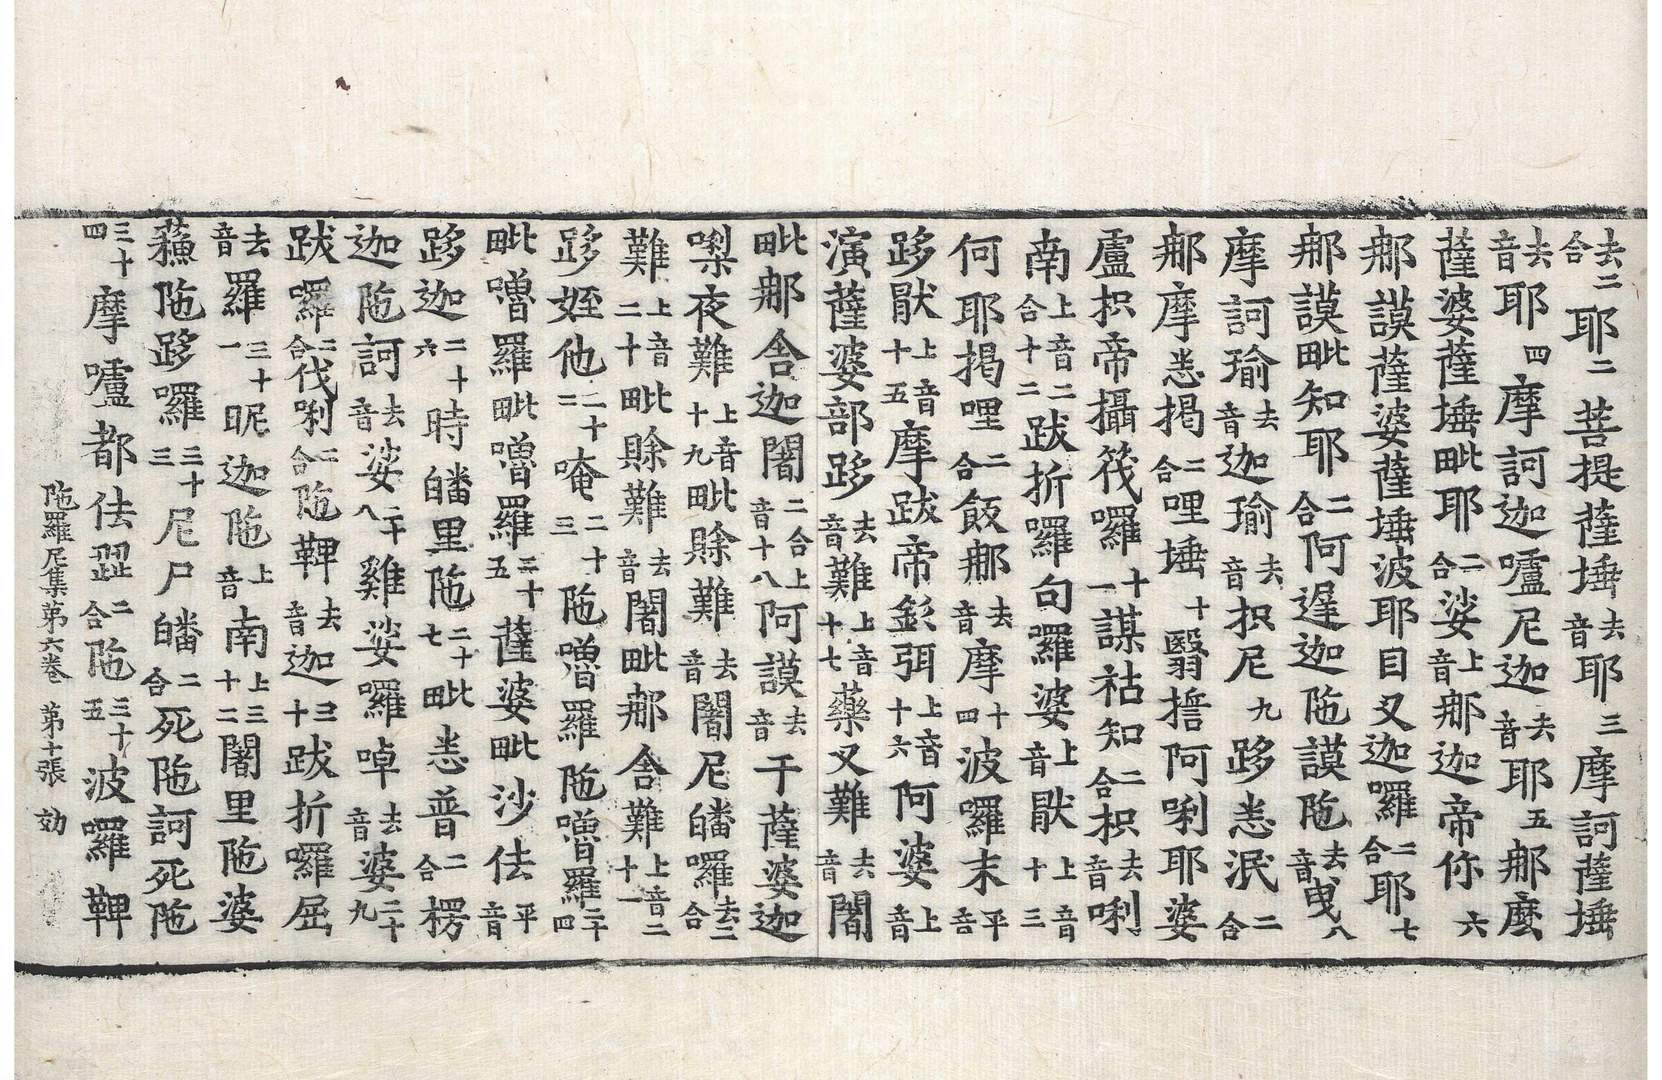 去二合耶二菩提薩埵去音耶三摩訶薩埵
去音耶四摩訶迦嚧尼迦去音耶五那麼
薩婆薩埵毗耶二合娑上音那迦帝你六
那謨薩婆薩埵波耶目叉迦囉二合耶七
那謨毗知耶二合阿遲迦陁謨陁去音曳八
摩訶瑜去音迦瑜去音抧尼九跢恙泯二合
那摩恙揭二合哩埵十翳擔阿唎耶婆
盧抧帝攝筏囉十一謀祜知二合抧去音唎
南上音二合十二跋折囉句囉婆上音猒上音十三
何耶揭哩二合皈那去音摩十四波囉末平音
跢猒上音十五摩跋帝釤弭上音十六阿婆上音
演薩婆部跢去音難上音十七藥叉難去音闍
毗那舍迦闍二合上音十八阿謨去音干薩婆迦
㗚夜難上音十九毗賖難去音闍尼皤囉去二合
難上音二十毗賖難去音闍毗那舍難上音二十一
跢姪他二十二唵二十三陁嚕羅陁嚕羅二十四
毗嚕羅毗嚕羅二十五薩婆毗沙佉平音
跢迦二十六時皤里陁二十七毗恙普二合楞
迦陁訶去音娑二十八雞婆囉啅去音婆二十九
跋囉二合伐唎二合陁鞞去音迦三十跋折囉屈
去音羅三十一昵迦陁上音南上三十二闍里陁婆
蘓陁跢囉三十三尼尸皤二合死陁訶死陁
三十四摩嚧都佉歰二合陁三十五波囉鞞
陁羅尼集第六卷　第十張　効